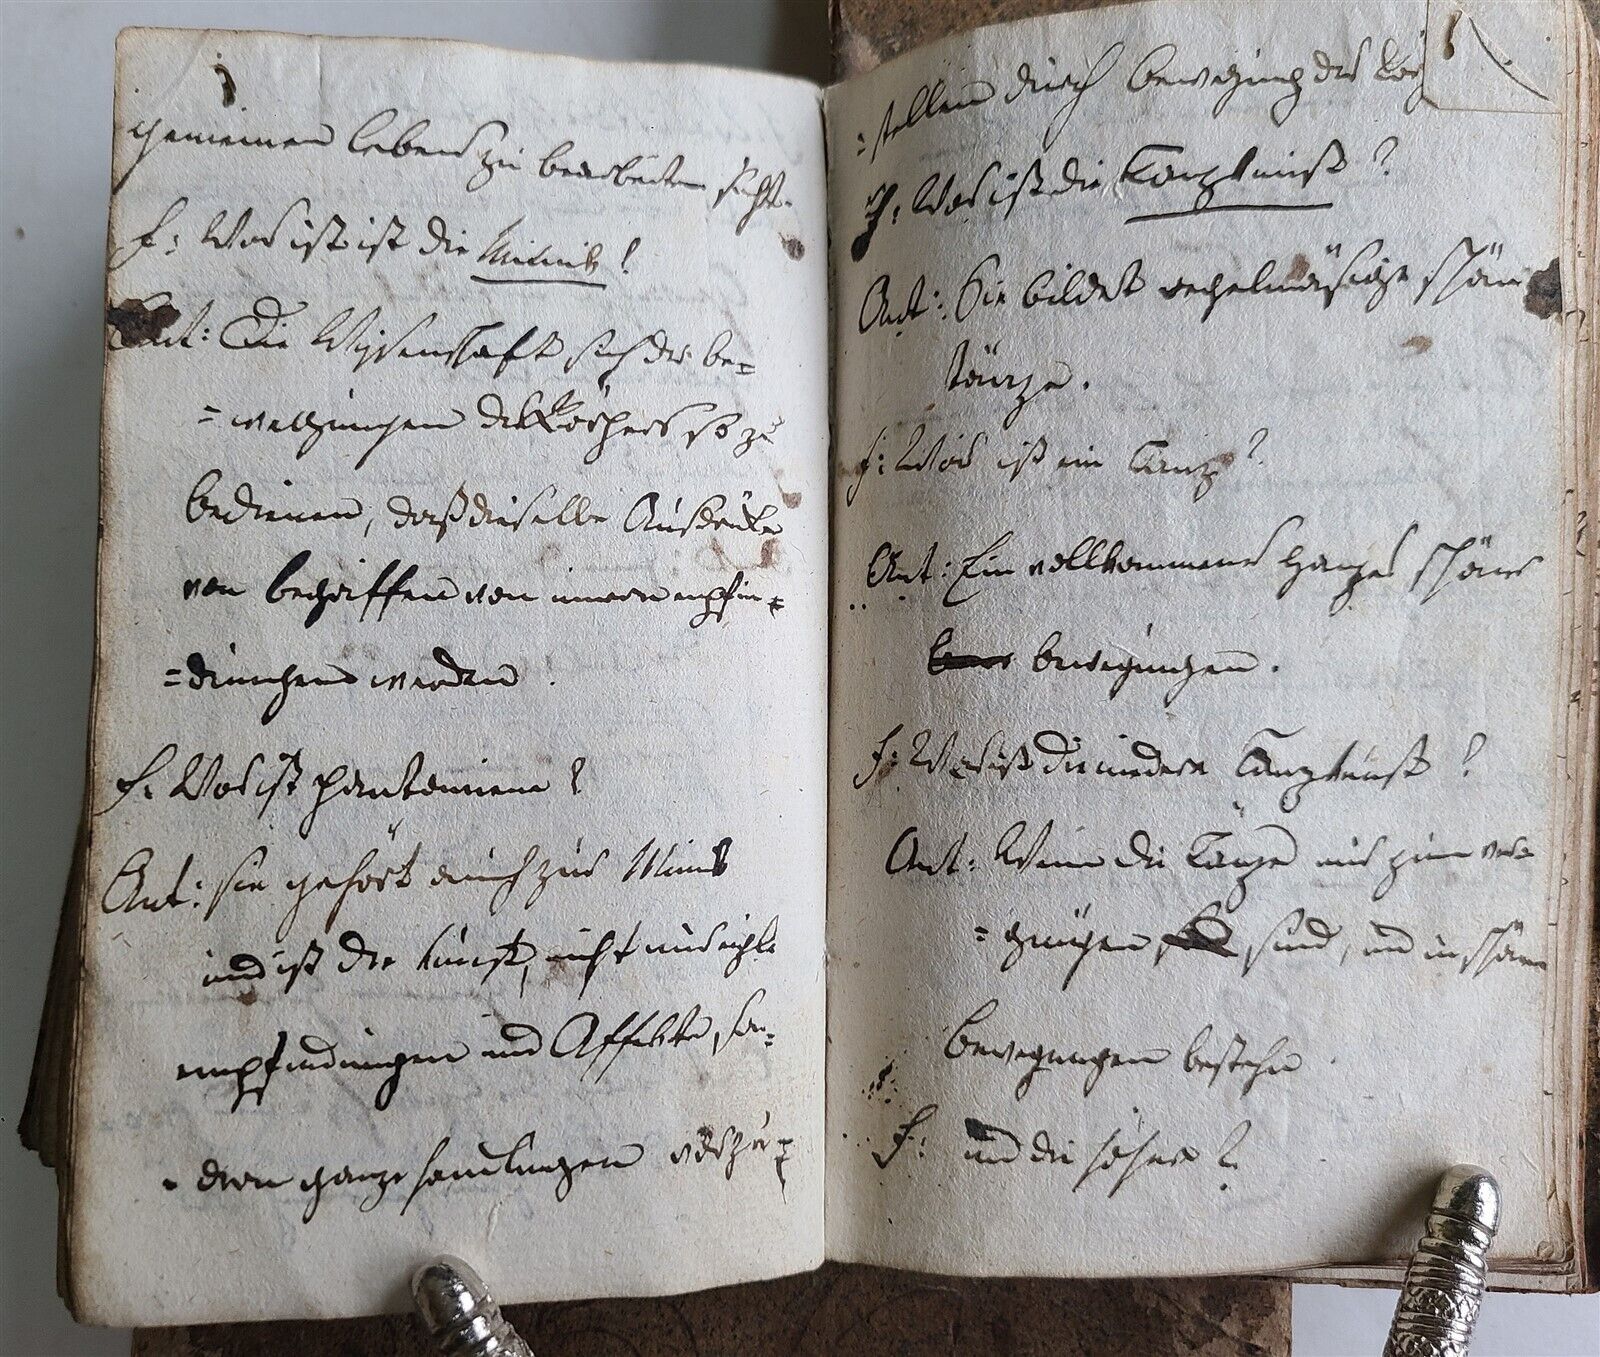 gemeinen lebens zu bearbeiten sucht.
F: Was ist ist die Mimik?
Ant: Die Wißenschaft sich der be=
=weegungen des Körpers so zu
bedienen, daß dieselbe Ausdrüke
von begriffen von innern empfin=
=dungen werden.
F: Was ist pantomime?
Ant: sie gehört auch zur Mimik
und ist die kunst, nicht nur
empfindungen und Affekte, son=
=dern ganze handlungen vorzu=
=stellen durch bewegung des
F: Was ist die Tanzkunst?
Ant: Sie bildet regelmäsige schöne
tänze.
F: Was ist ein Tanz?
Ant: Ein vollkommenes ganzes schöner
bewegungen.
F: Was ist die niedere Tanzkunst?
Ant: Wenn die Tänze nur zum ver=
=gnügen sind, und in schönen
bewegungen bestehn
F: und die höhere?